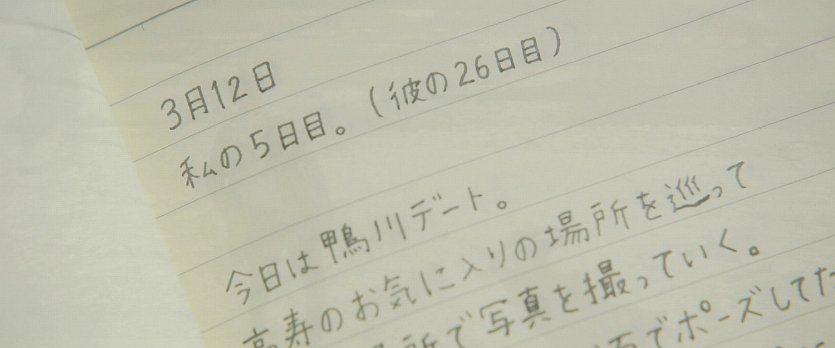 3月12日
私の5日目。(彼の26日目)
今日は鴨川デート。
高寿のお気に入りの場所を巡って
所で写真を撮っていく。
でポーズしてた